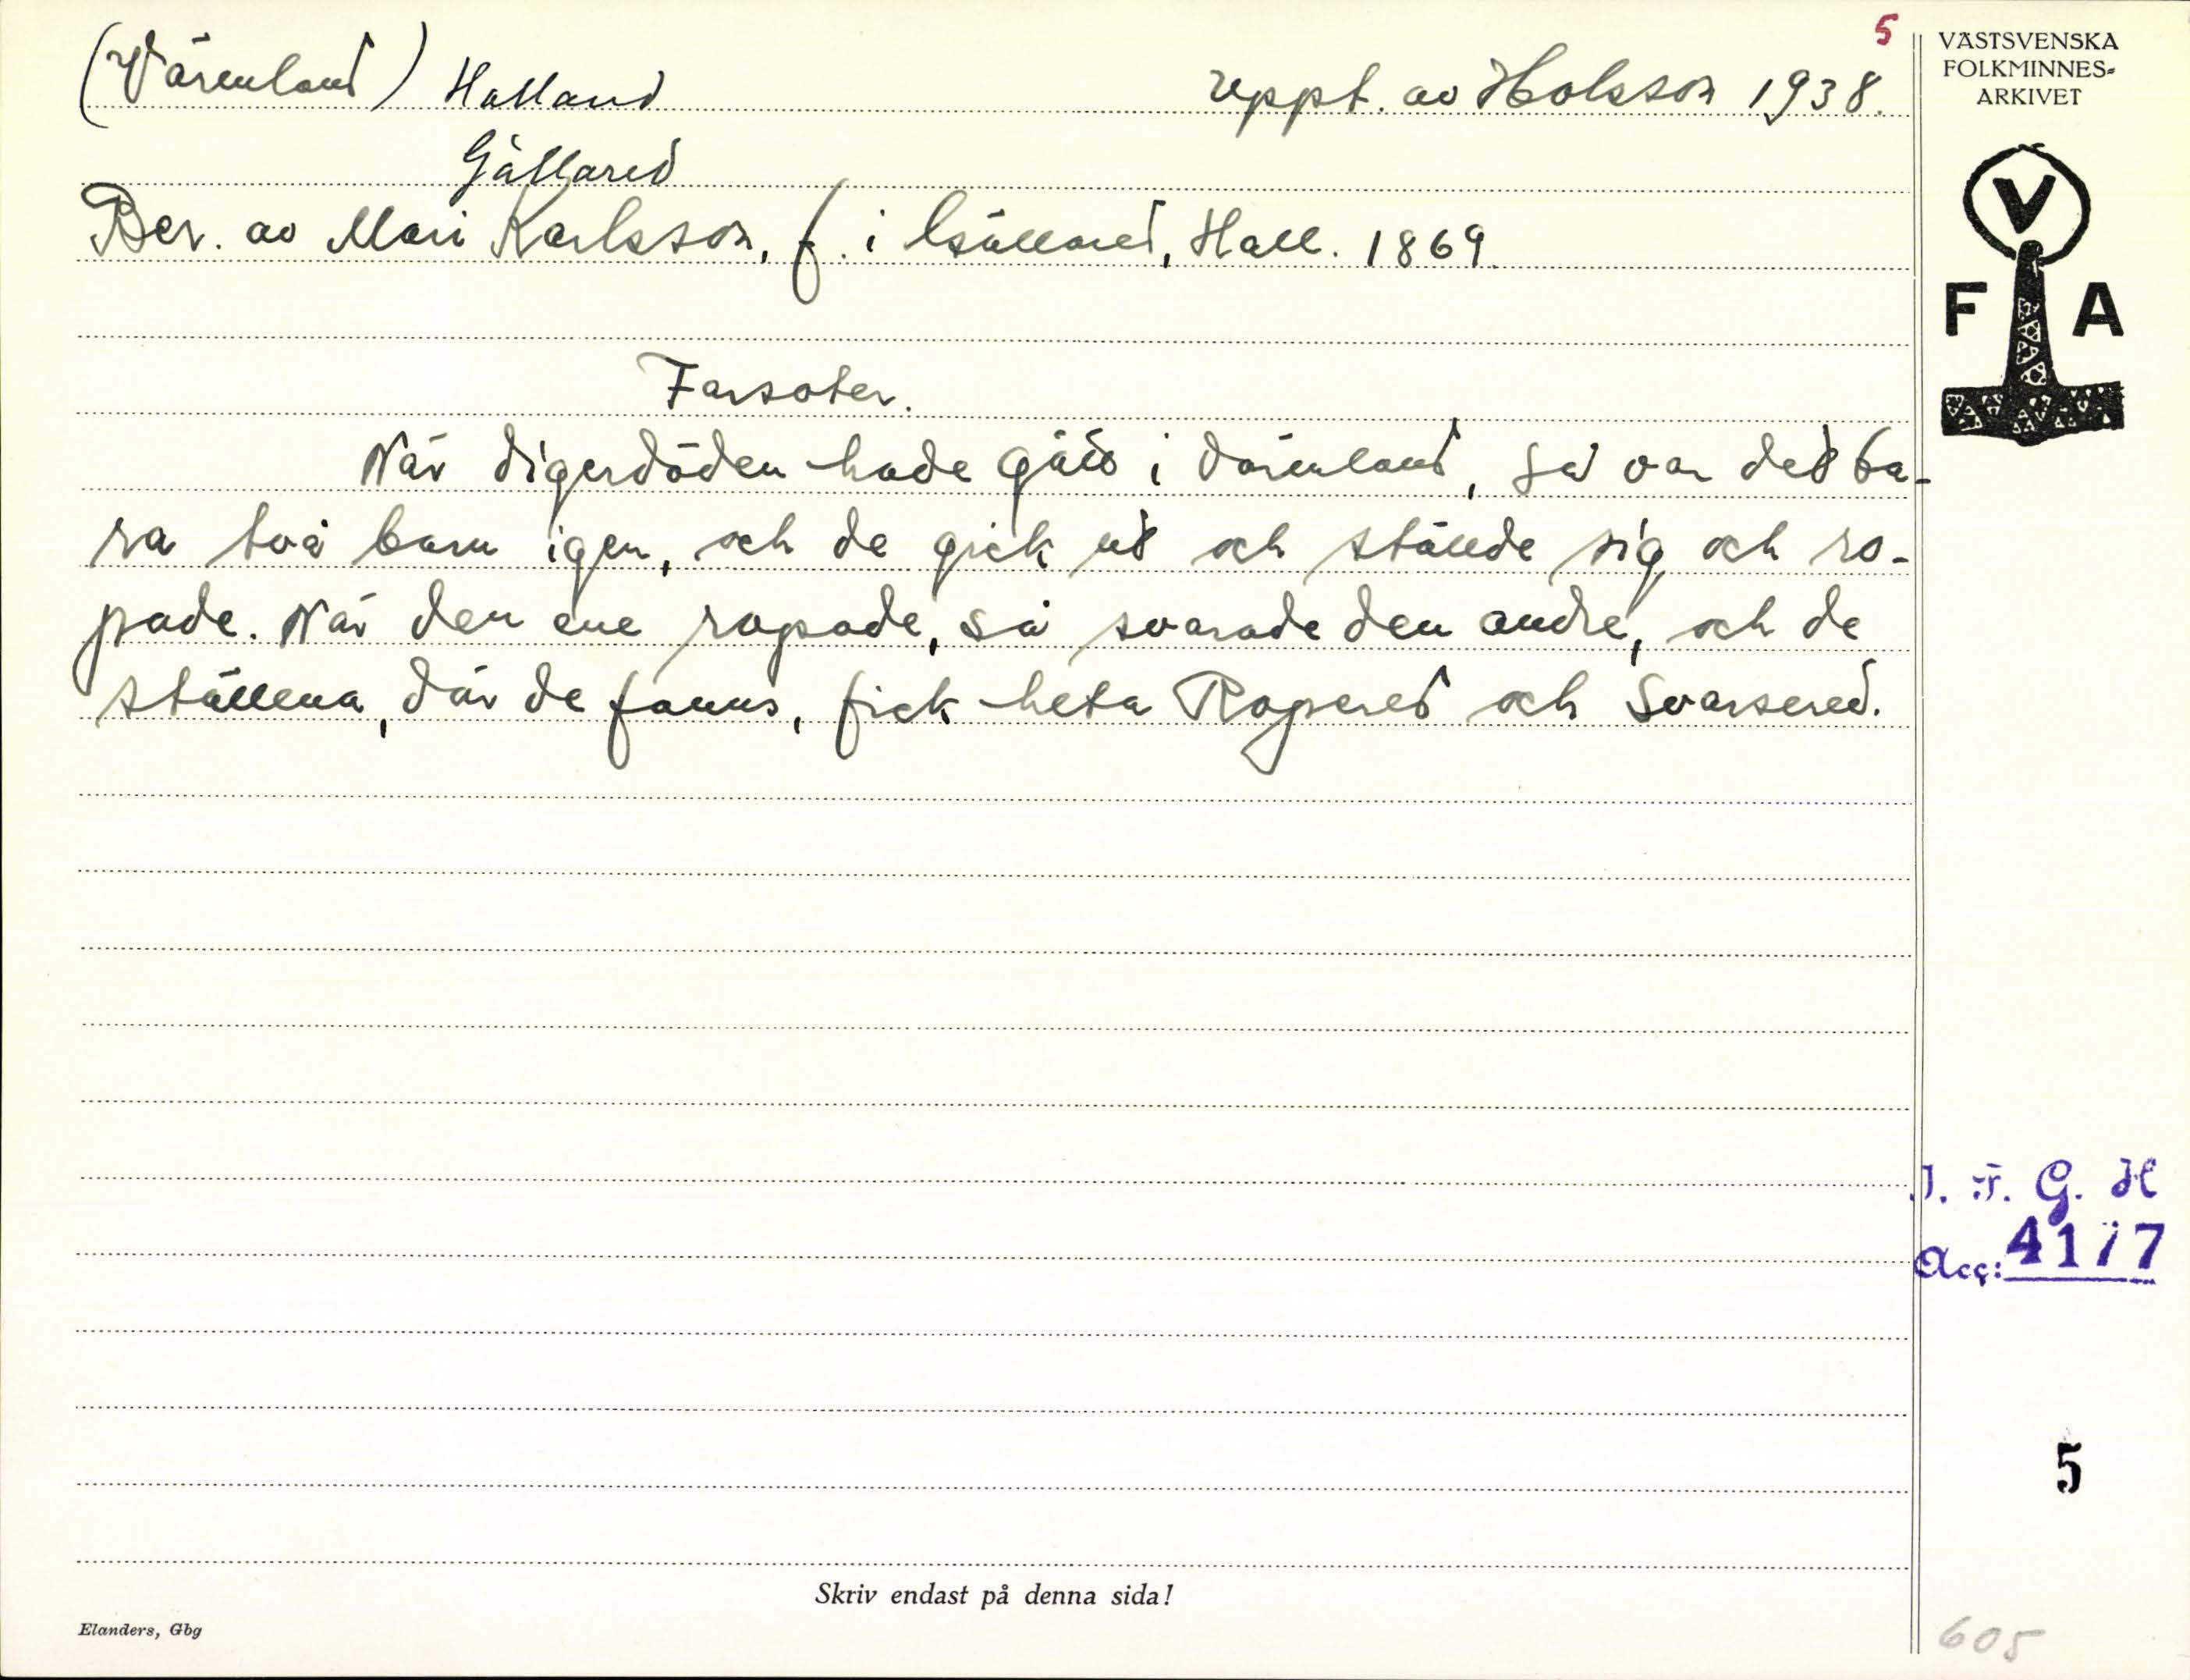 5
(Värenland) Halland
Uppt. av Holsson 1938.
Gällared
Ber. av Mari Karlsson, f. i Gällared, Hall. 1869.
Farsoter.
När digerdöden hade gått i Värenland, så var det ba-
ra två barn igen, och de gick ut och ställde sig och ro-
pade. När den ene ropade, så svarade den andre, och de
ställena, där de fanns, fick heta Ropered och Svarsered.
VÄSTSVENSKA
FOLKMINNES-
ARKIVET
V
F A
I. F. G. H
Acc: 4177
5
Skriv endast på denna sida!
Elanders, Gbg
605